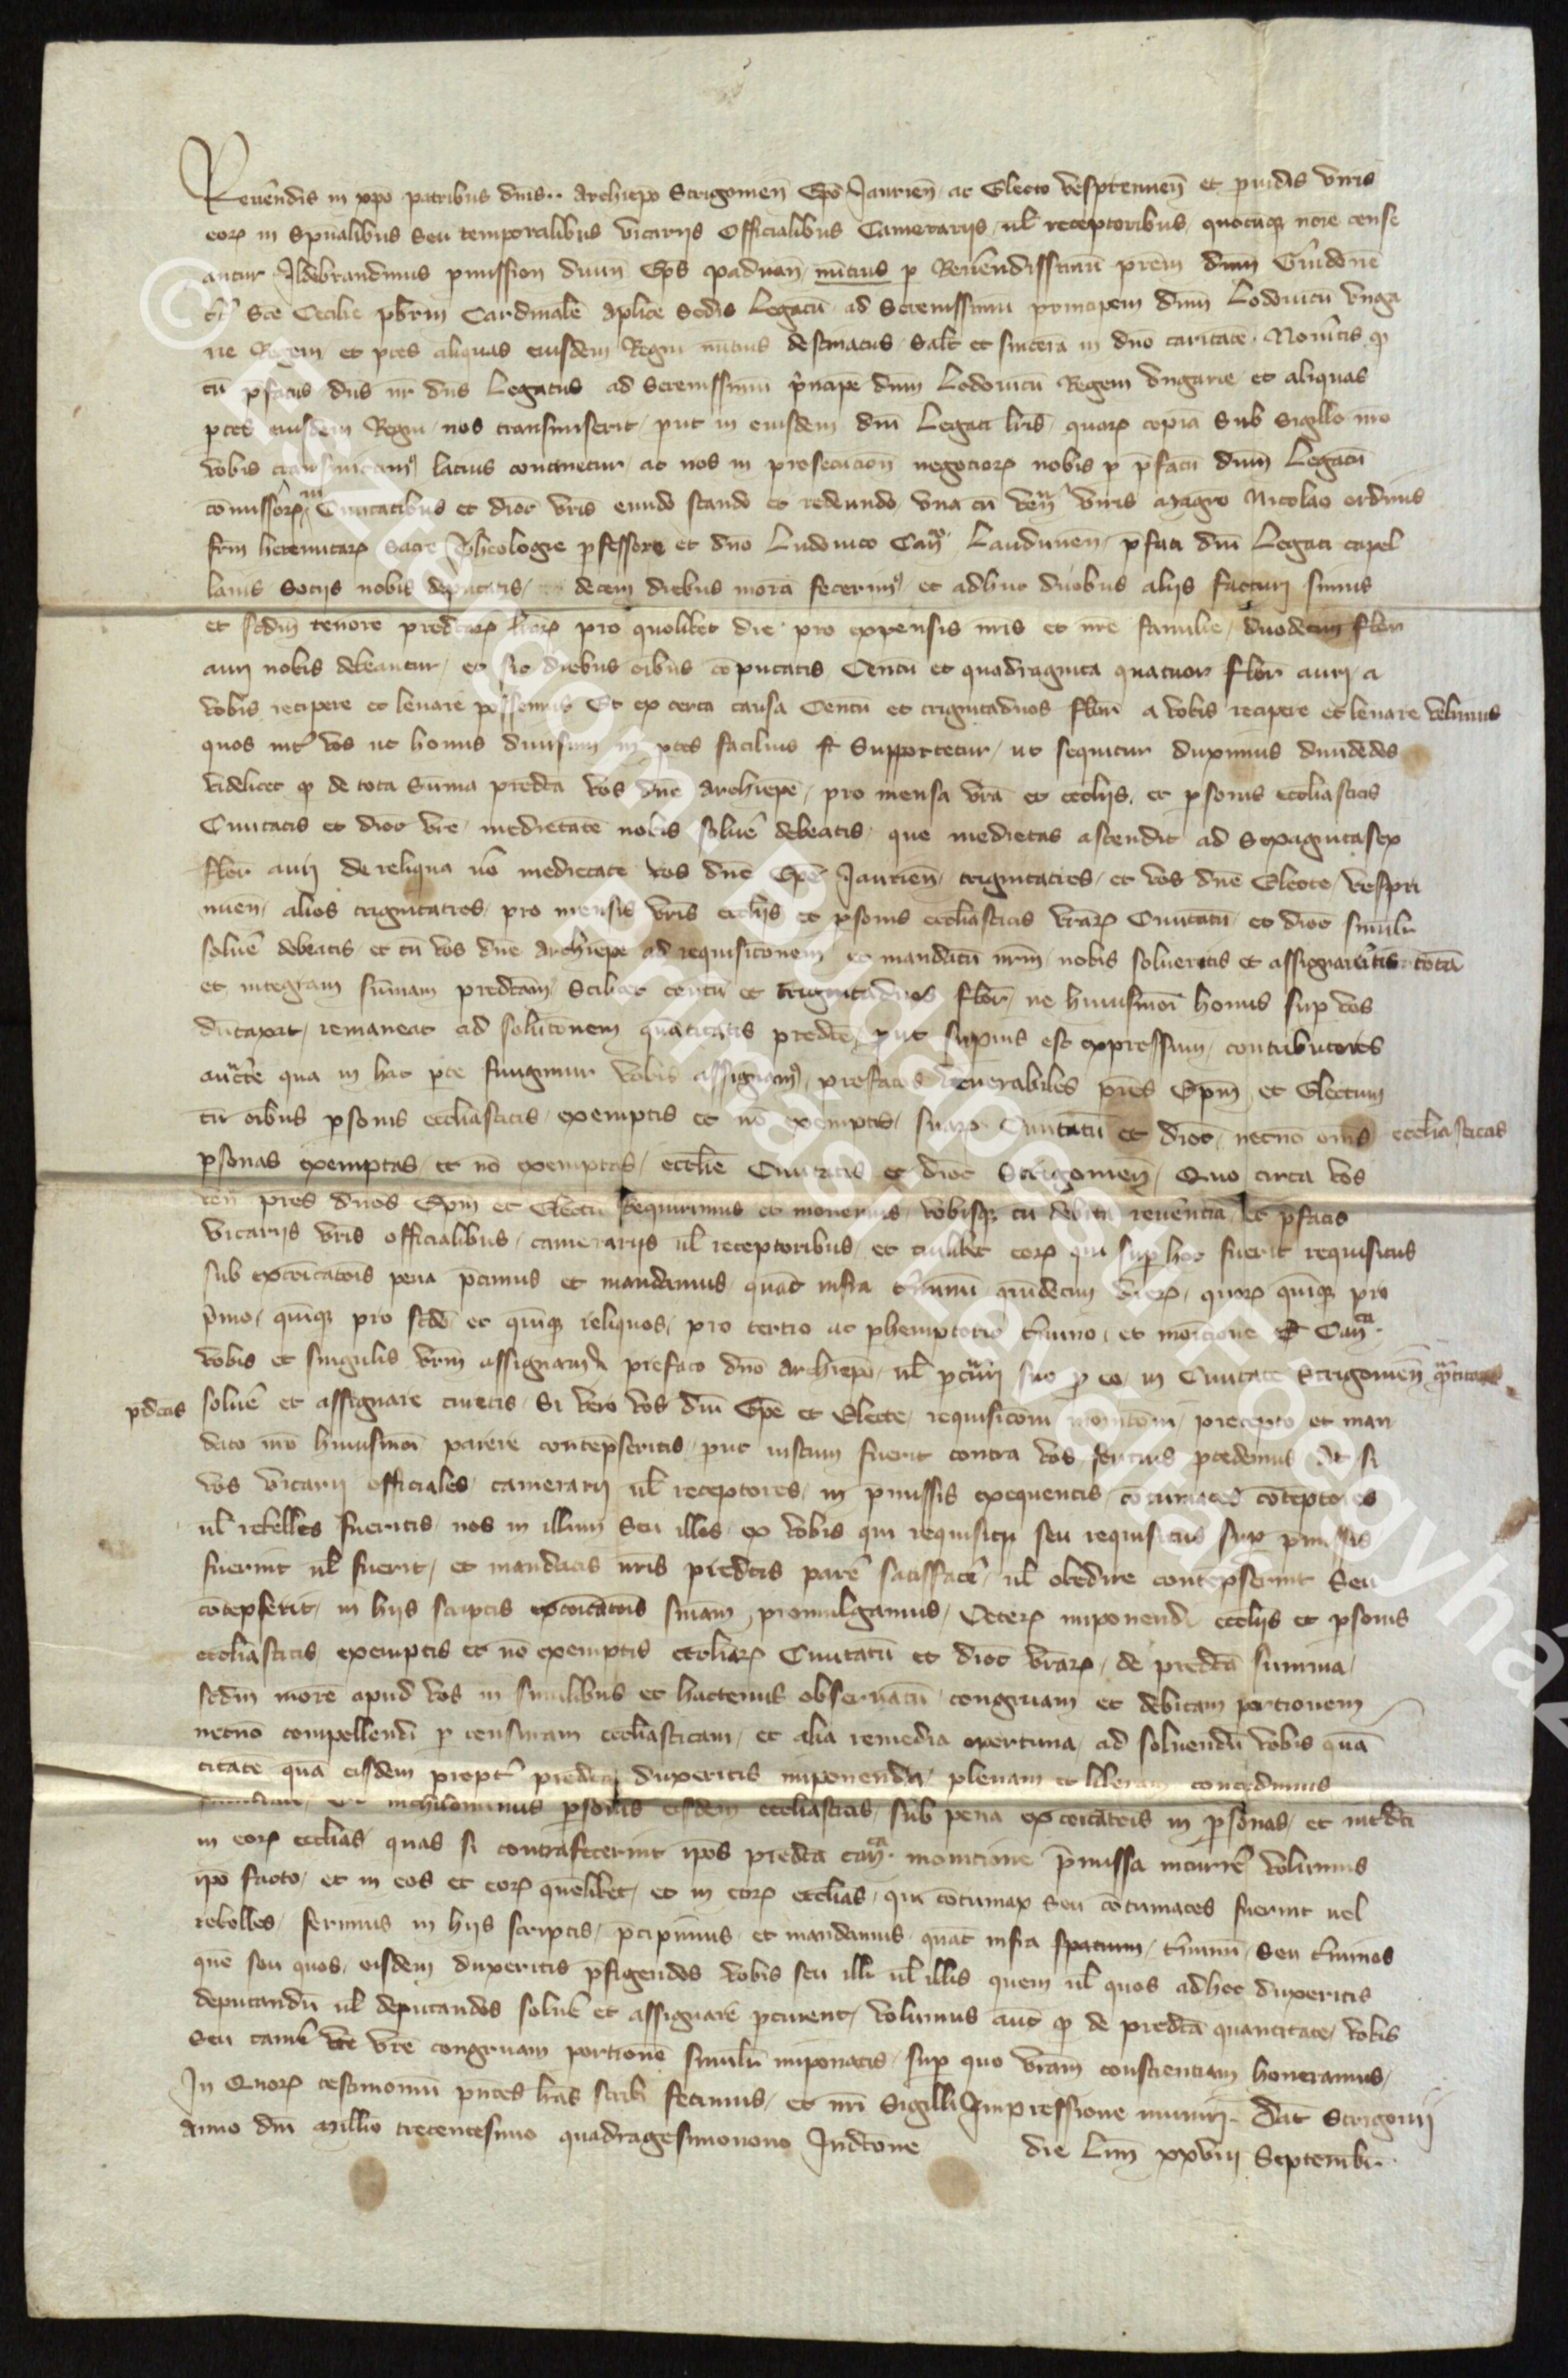 Reuendis in xpo patribus dnis .. Archiepo Strigonien Epo Jaurien ac Electo Vesprimien et puidis viris
eorz in Spualibus Seu temporalibus vicariis Officialibus Camerariis ul receptoribus quocuqz noie cense
antur Ildebrandinus pmission diuin Eps paduan nutius p Reuendissimu prem dnm Guidone
tt Sce Cecilie pbrm Cardinale aplice Sedis Legatu ad Serenissimu principem dnm Lodouicu Vnga
rie Regem et ptes aliquas eiusdem Regni nutius destinatus Salt et sincera in dno caritate Noueritis qp
cu pfatus dns nr dns Legatus ad Serenissimu principe dnm Lodouicu Regem Vngarie et aliquas
ptes eiusdem Regni nos transmiserit put in eiusdem dni Legati lris quarz copia Sub Sigillo nro
vobis transmittimus latius continetur ac nos in prosecution negotiorz nobis p pfatu dnm Legatu
comissorz in Ciuitatibus et dioc vris eundo stando et redeundo vna cu ven viris Magro Nicolao ordinis
frm heremitarz Sacre Theologie pfessore et dno Ludouico Can Laudunen pfati dni Legati capel
lanis Sociis nobis deputatis decem diebus mora fecerimus et adhuc duobus aliis facturi simus
et scdm tenore predcarz lrarz pro quolibet die pro expensis nris et nre familie duodecim flor
auri nobis debeantur et sic diebus oibus coputatis Centu et quadraginta quatuor flor auri a
vobis recipere et leuare possemus Et ex certa causa Centu et trigintaduos flor a vobis recipere et leuare volumus
quos int vos ut honus diuisim in ptes facilius Supportetur ut sequitur duximus diuidedos
videlicet qp de tota Suma predca vos dne Archiepe pro mensa vra et ecclijs et psonis ecclesiasticis
Ciuitatis et dioc vre medietate nobis solue debeatis que medietas ascendit ad Sexagintasex
flor auri de reliqua uo medietate vos dne Epe Jaurien trigintatres et vos dne Electe Vespri
mien alios trigintatres pro mensis vris ecclijs et psonis ecclesiasticis vrarz Ciuitatu et dioc similr
solue debeatis et cu vos dne Archiepe ad requisitionem et mandatu nrm nobis solueritis et assignaueritis tota
et integram sumam predcam Scilicet centu et trigintaduos flor ne huiusmoi honus sup vos
dutaxat remaneat ad solutionem quatitatis predce put supius est expressum contributores
aucte qua in hac pte fungimur vobis assignamus prefatos Venerabiles pres Epm et Electum
cu oibus psonis ecclesiasticis exemptis et no exemptis suarz Ciuitatu et dioc necno oms ecclesiasticas
psonas exemptas et no exemptas ecclie Ciuitatis et dioc Strigonien Quo circa vos
ven pres dnos Epm et Electu Requirimus et monemus vobisqz cu debita reuerencia et pfatis
vicariis vris officialibus camerariis ul receptoribus et cuilibet eorz qui sup hoc fuerit requisitus
sub excoicatois pena pcimus et mandamus quat infra tminu quindecim dierz quorz quiqz pro
pmo quiqz pro scdo et quiqz reliquos pro tertio ac pemptorio tmino et monitione Can ca
vobis et singulis vrm assignamus prefato dno Archiepo ul pcuri suo p eo in Ciuitate Strigonien quatitates
pdcas solue et assignare curetis Si vero vos dni Epe et Electe requisitioni monitioni precepto et man
dato nro huiusmoi parere contepseritis put iustum fuerit contra vos fortius pcedemus At si
vos vicarii officiales camerarii ul receptores in pmissis exequentis cotumaces coteptores
ul rebelles fueritis nos in illum Seu illos ex vobis qui requisiti seu requisitus sup pmissis
fuerint ul fuerit et mandatis nris predcis pare satisface ul obedire contepserint Seu
cotepserit in hijs scriptis excoicatois sniam promulgamus Ceterz imponendi ecclijs et psonis
ecclesiasticis exemptis et no exemptis eccliarz Ciuitatu et dioc vrarz de predca summa
scdm more apud vos in similibus et hactenus obseruatu congruam et debitam portionem
necno compellendi p censuram ecclesiasticam et alia remedia oportuna ad soluendu vobis qua
titate qua eisdem propt predca duxeritis imponenda plenam et liberam concedimus
Et nichilominus psonis eisdem ecclesiasticis sub pena excoicatois in psonas et intdci
in eorz ecclias quas si contrafecerint ipos predca can ca monitione pmissa incurre volumus
ipo facto et in eos et eorz quelibet et in eorz ecclias qui cotumax Seu cotumaces fuerint uel
rebelles ferimus in hijs scriptis pcipimus et mandamus quat infra spatium tminu Seu tminos
que seu quos eisdem duxeritis pfigendos vobis seu illi ul illis quem ul quos ad hoc duxeritis
deputandu ul deputandos solue et assignare pcurent volumus aut qp de predca quantitate vobis
Seu came vre congruam portione similr imponatis sup quo vram conscientiam honeramus
In Quorz testimoniu pntes lras scribi fecimus et nri Sigilli Impressione muniri Dat Strigonij
Anno dni Millio trecentesimo quadragesimonono Indcone die Lun xxviii Septembr